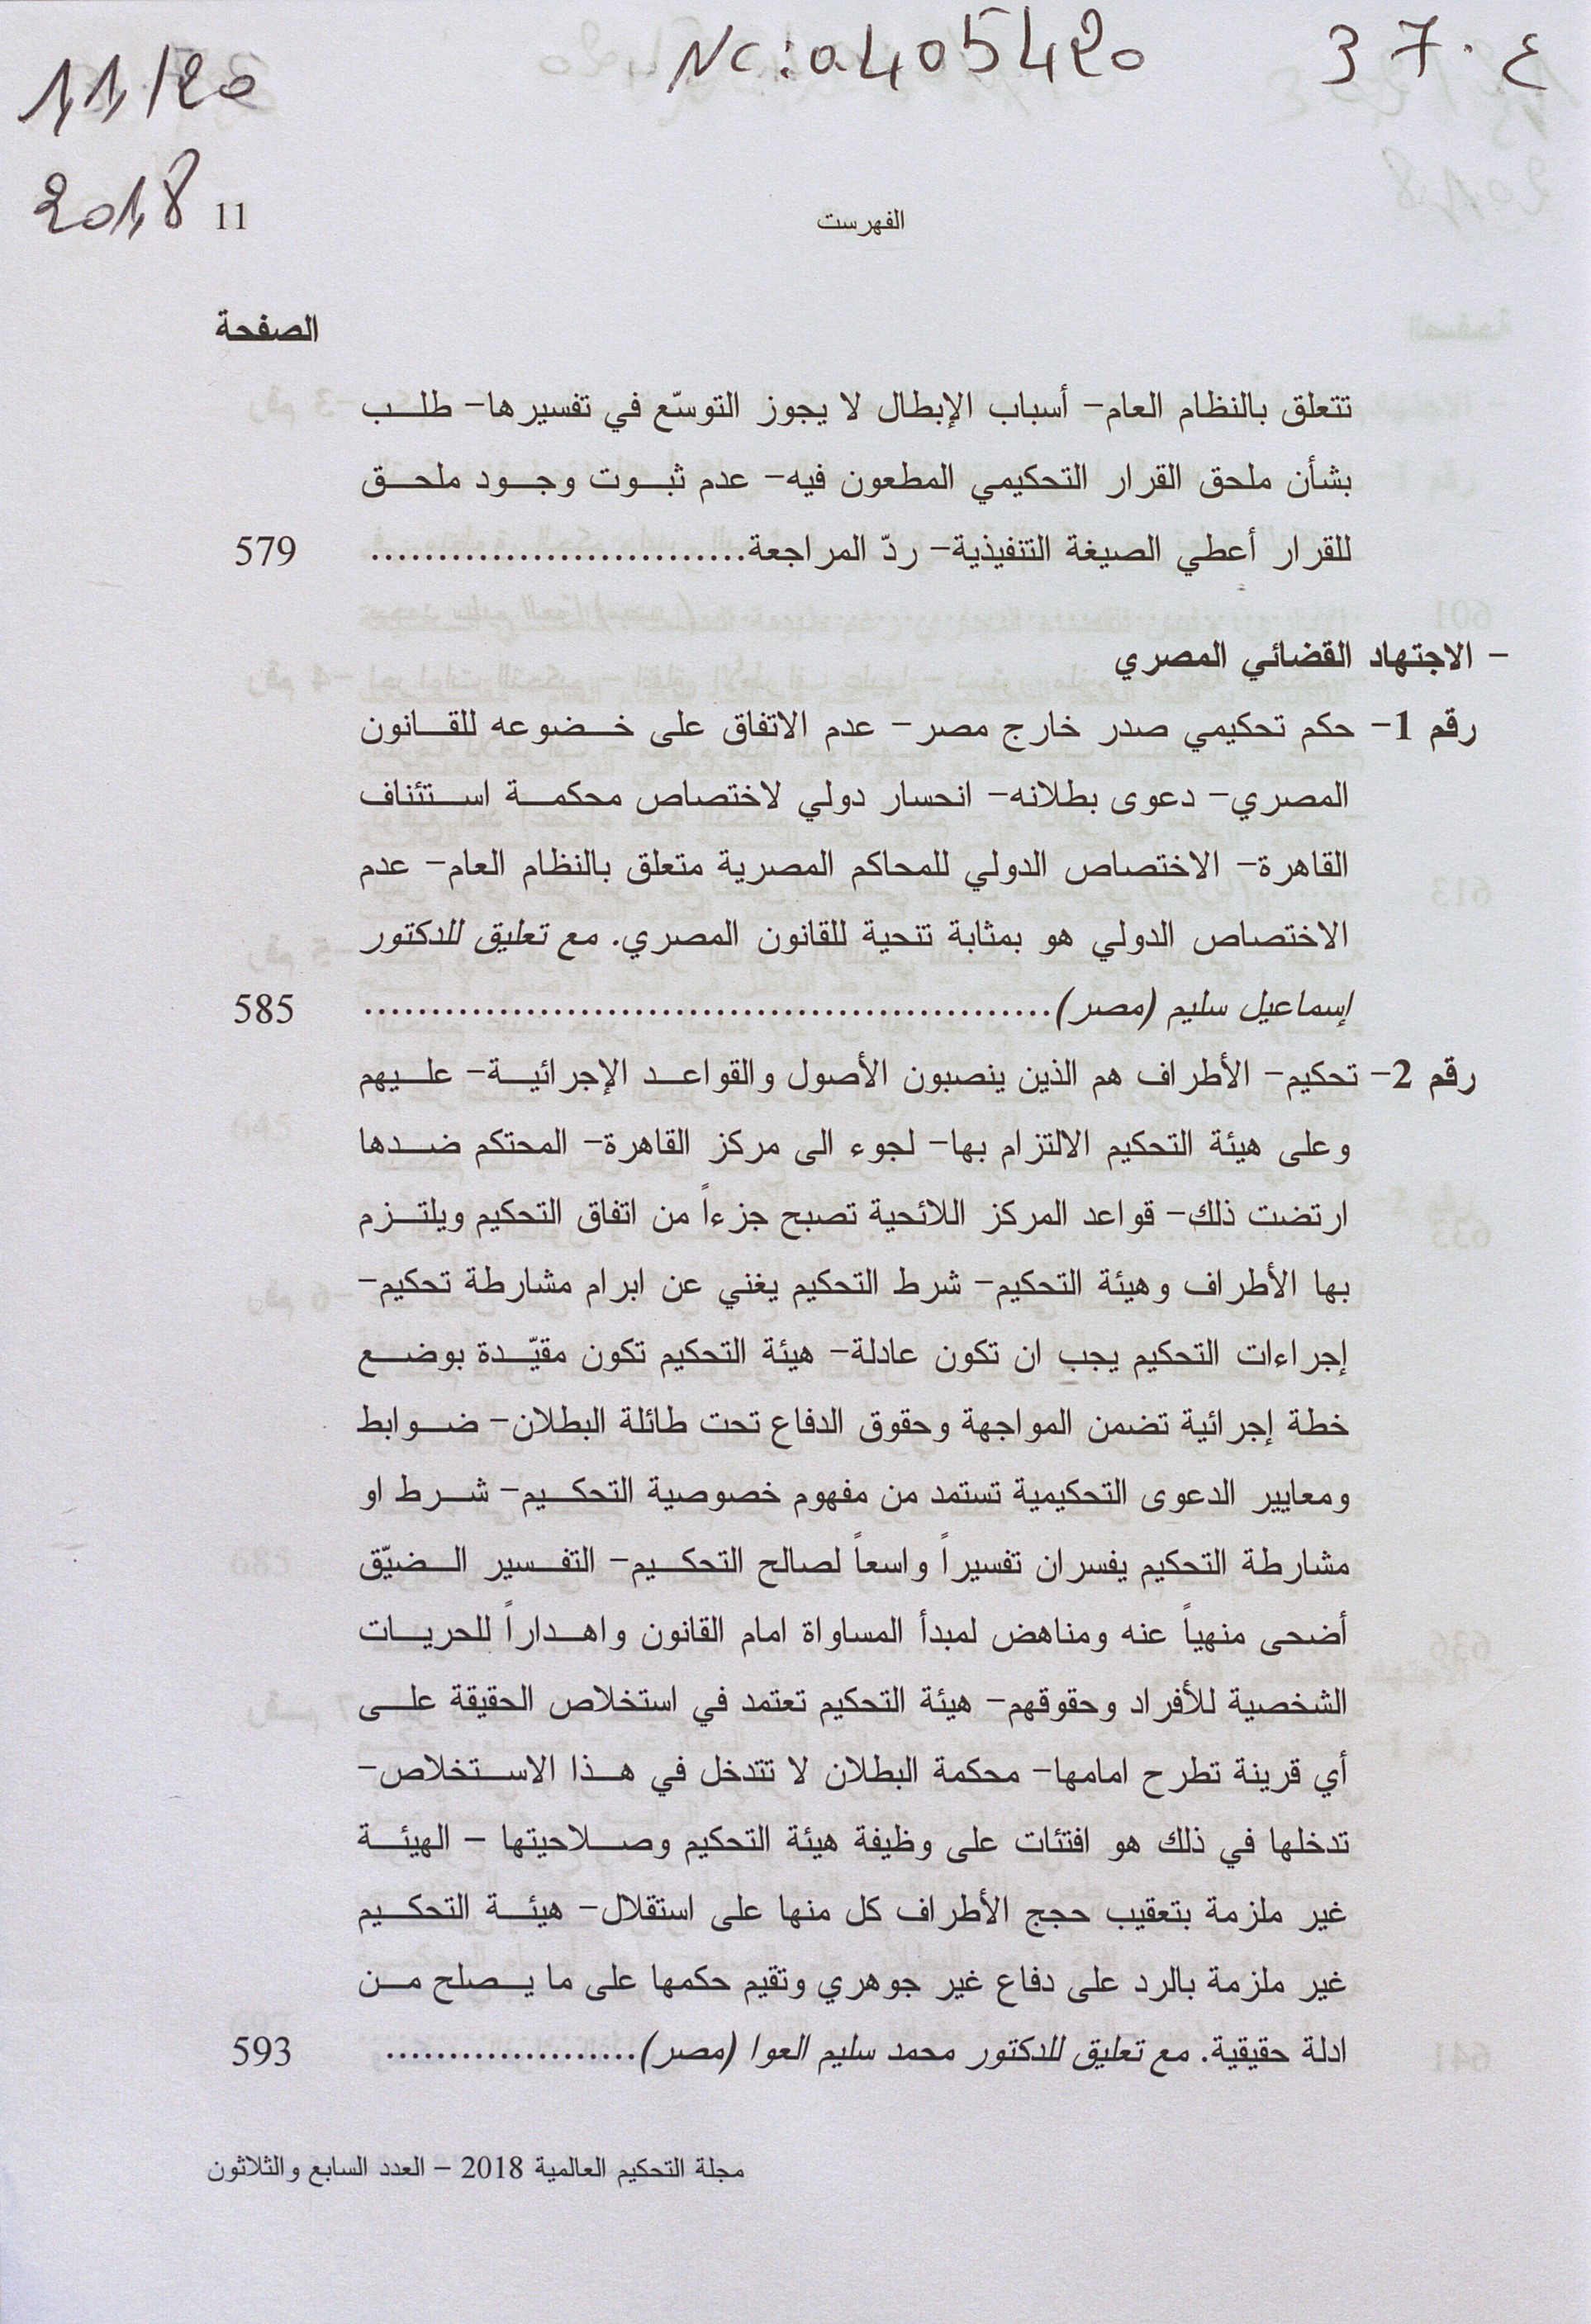 11/20
2018
Nc: a405420
37.ع
11
الفهرست
الصفحة
تتعلق بالنظام العام- أسباب الإبطال لا يجوز التوسّع في تفسيرها- طلب
بشأن ملحق القرار التحكيمي المطعون فيه- عدم ثبوت وجود ملحق
للقرار أعطي الصيغة التنفيذية- ردّ المراجعة............................ 579
- الاجتهاد القضائي المصري
رقم 1- حكم تحكيمي صدر خارج مصر- عدم الاتفاق على خضوعه للقانون
المصري- دعوى بطلانه- انحسار دولي لاختصاص محكمة استئناف
القاهرة- الاختصاص الدولي للمحاكم المصرية متعلق بالنظام العام- عدم
الاختصاص الدولي هو بمثابة تنحية للقانون المصري. مع تعليق للدكتور
إسماعيل سليم (مصر).................................................... 585
رقم 2- تحكيم- الأطراف هم الذين ينصبون الأصول والقواعد الإجرائية- عليهم
وعلى هيئة التحكيم الالتزام بها- لجوء الى مركز القاهرة- المحتكم ضدها
ارتضت ذلك- قواعد المركز اللائحية تصبح جزءاً من اتفاق التحكيم ويلتزم
بها الأطراف وهيئة التحكيم- شرط التحكيم يغني عن ابرام مشارطة تحكيم-
إجراءات التحكيم يجب ان تكون عادلة- هيئة التحكيم تكون مقيّدة بوضع
خطة إجرائية تضمن المواجهة وحقوق الدفاع تحت طائلة البطلان- ضوابط
ومعايير الدعوى التحكيمية تستمد من مفهوم خصوصية التحكيم- شرط او
مشارطة التحكيم يفسران تفسيراً واسعاً لصالح التحكيم- التفسير الضيّق
أضحى منهياً عنه ومناهض لمبدأ المساواة امام القانون واهداراً للحريات
الشخصية للأفراد وحقوقهم- هيئة التحكيم تعتمد في استخلاص الحقيقة على
أي قرينة تطرح امامها- محكمة البطلان لا تتدخل في هذا الاستخلاص-
تدخلها في ذلك هو افتئات على وظيفة هيئة التحكيم وصلاحيتها - الهيئة
غير ملزمة بتعقيب حجج الأطراف كل منها على استقلال- هيئة التحكيم
غير ملزمة بالرد على دفاع غير جوهري وتقيم حكمها على ما يصلح من
ادلة حقيقية. مع تعليق للدكتور محمد سليم العوا (مصر).................... 593
مجلة التحكيم العالمية 2018 – العدد السابع والثلاثون